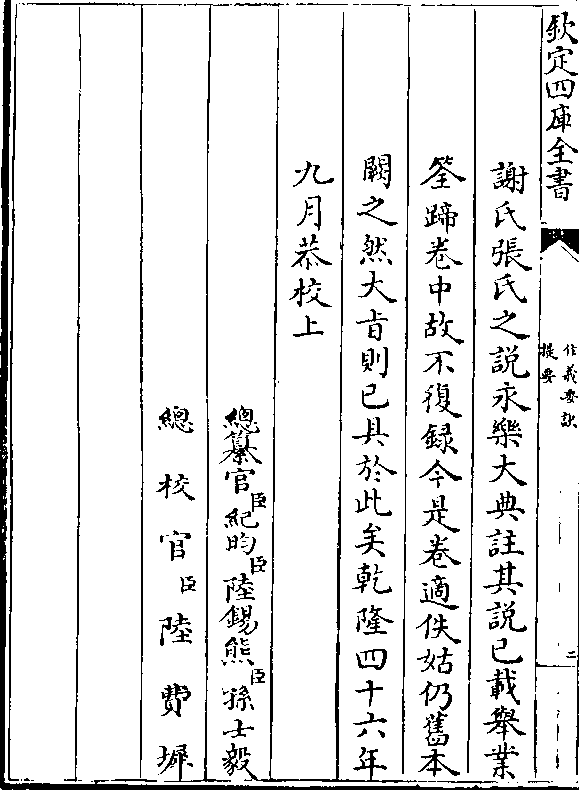 欽定四庫全書
作義要訣
提要
二
謝氏張氏之説永樂大典註其説已載舉業
筌蹄卷中故不復録今是卷適佚姑仍舊本
闕之然大旨則已具於此矣乾隆四十六年
九月恭校上
總纂官臣紀昀臣陸錫熊臣孫士毅
總校官臣陸費墀